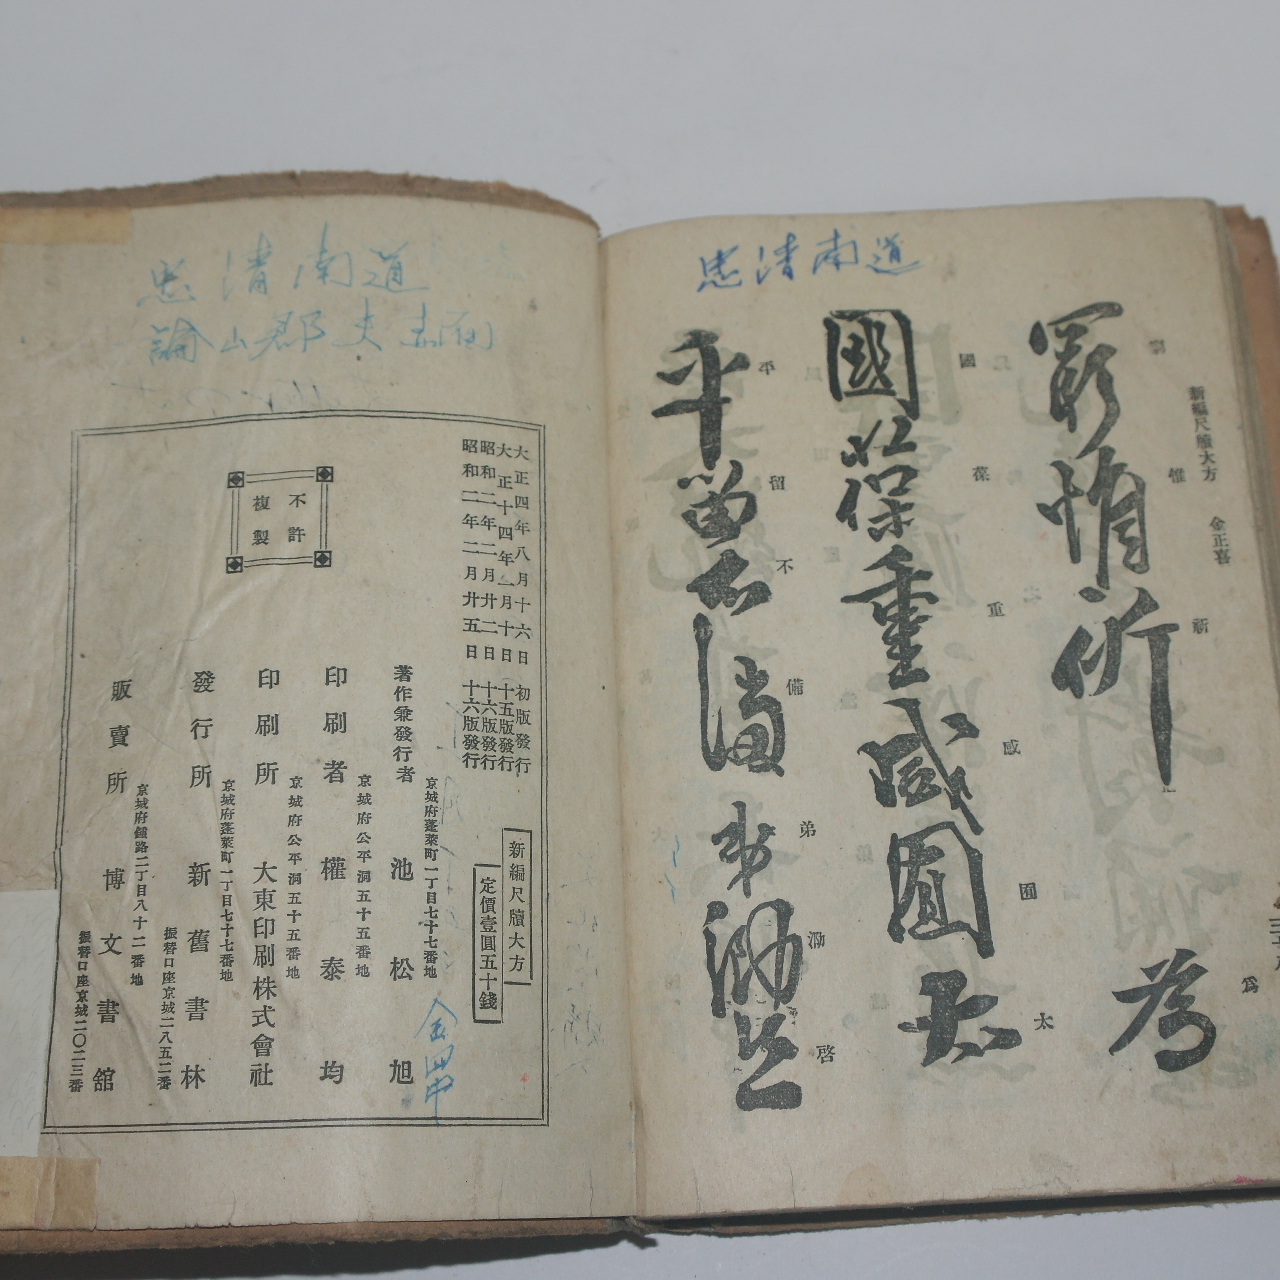 新編尺牘大方
金正喜
為
爲
國葆重
國
葆
重
感
太
平留不備弟
平
留
不
備
弟
泐
啓
惟
忠清南道
忠清南道
論山郡
大正四年八月十六日 初版發行
大正十四年一月十日 十五版發行
昭和二年二月廿二日 十六版發行
昭和二年二月廿五日 十六版發行
不許
複製
新編尺牘大方
定價壹圓五十錢
京城府蓬萊町一丁目七十七番地
著作兼發行者 池松旭
京城府公平洞五十五番地
印刷者 權泰均
京城府公平洞五十五番地
印刷所 大東印刷株式會社
京城府蓬萊町一丁目七十七番地
發行所 新舊書林
振替口座京城二八五二番
京城府鍾路二丁目八十二番地
販賣所 博文書舘
振替口座京城二〇二三番